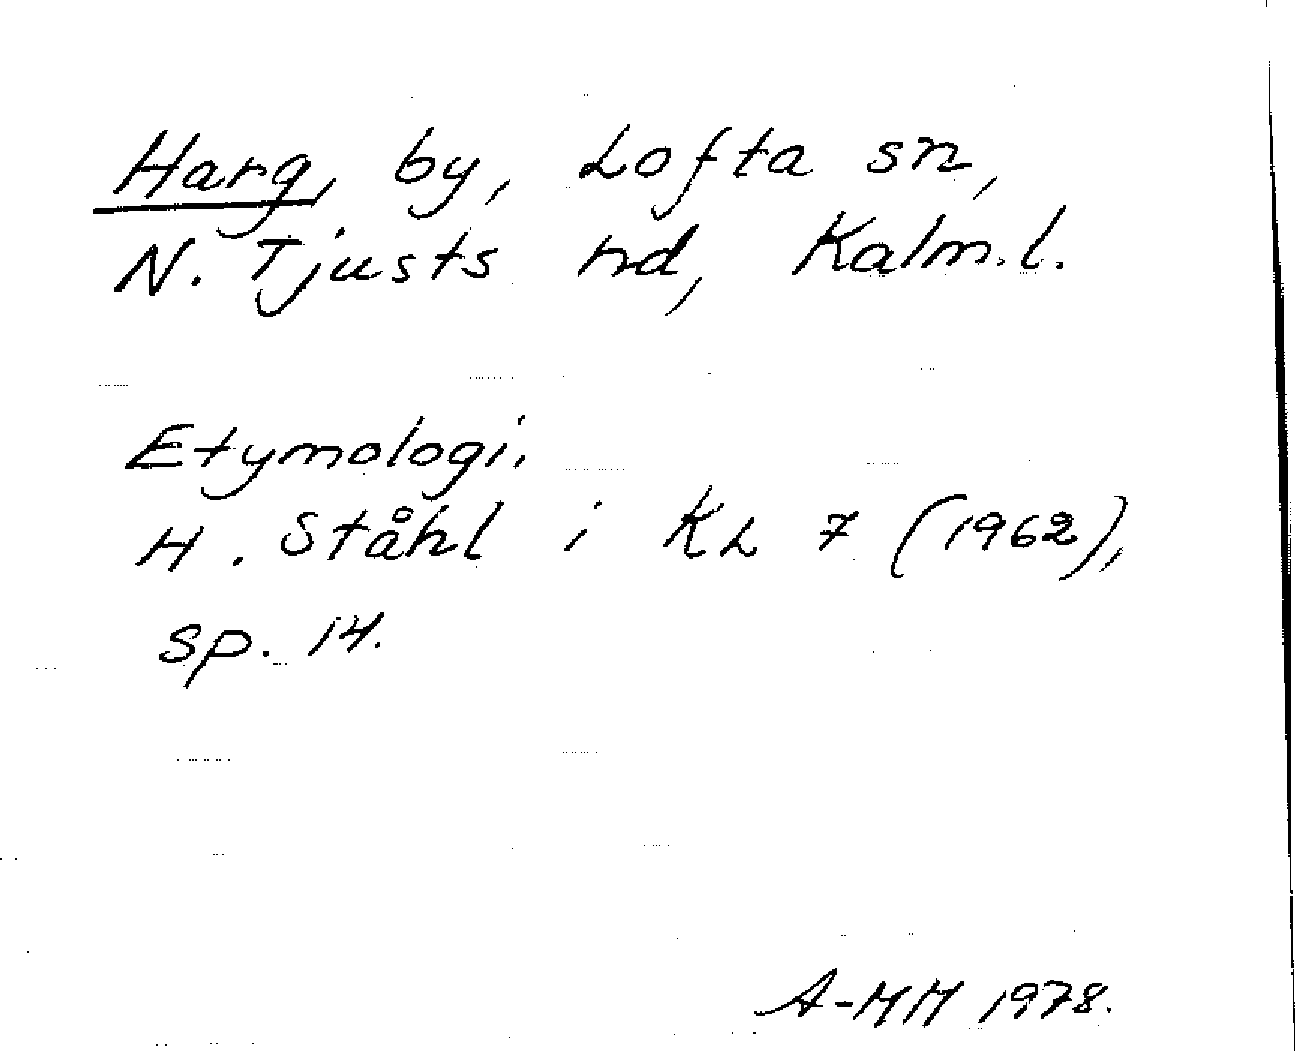 Harg, by, Lofta sn,
N. Tjusts hd, Kalm.l.
Etymologi.
H. Ståhl i KL 7 (1962),
sp. 14.
A-MM 1978.